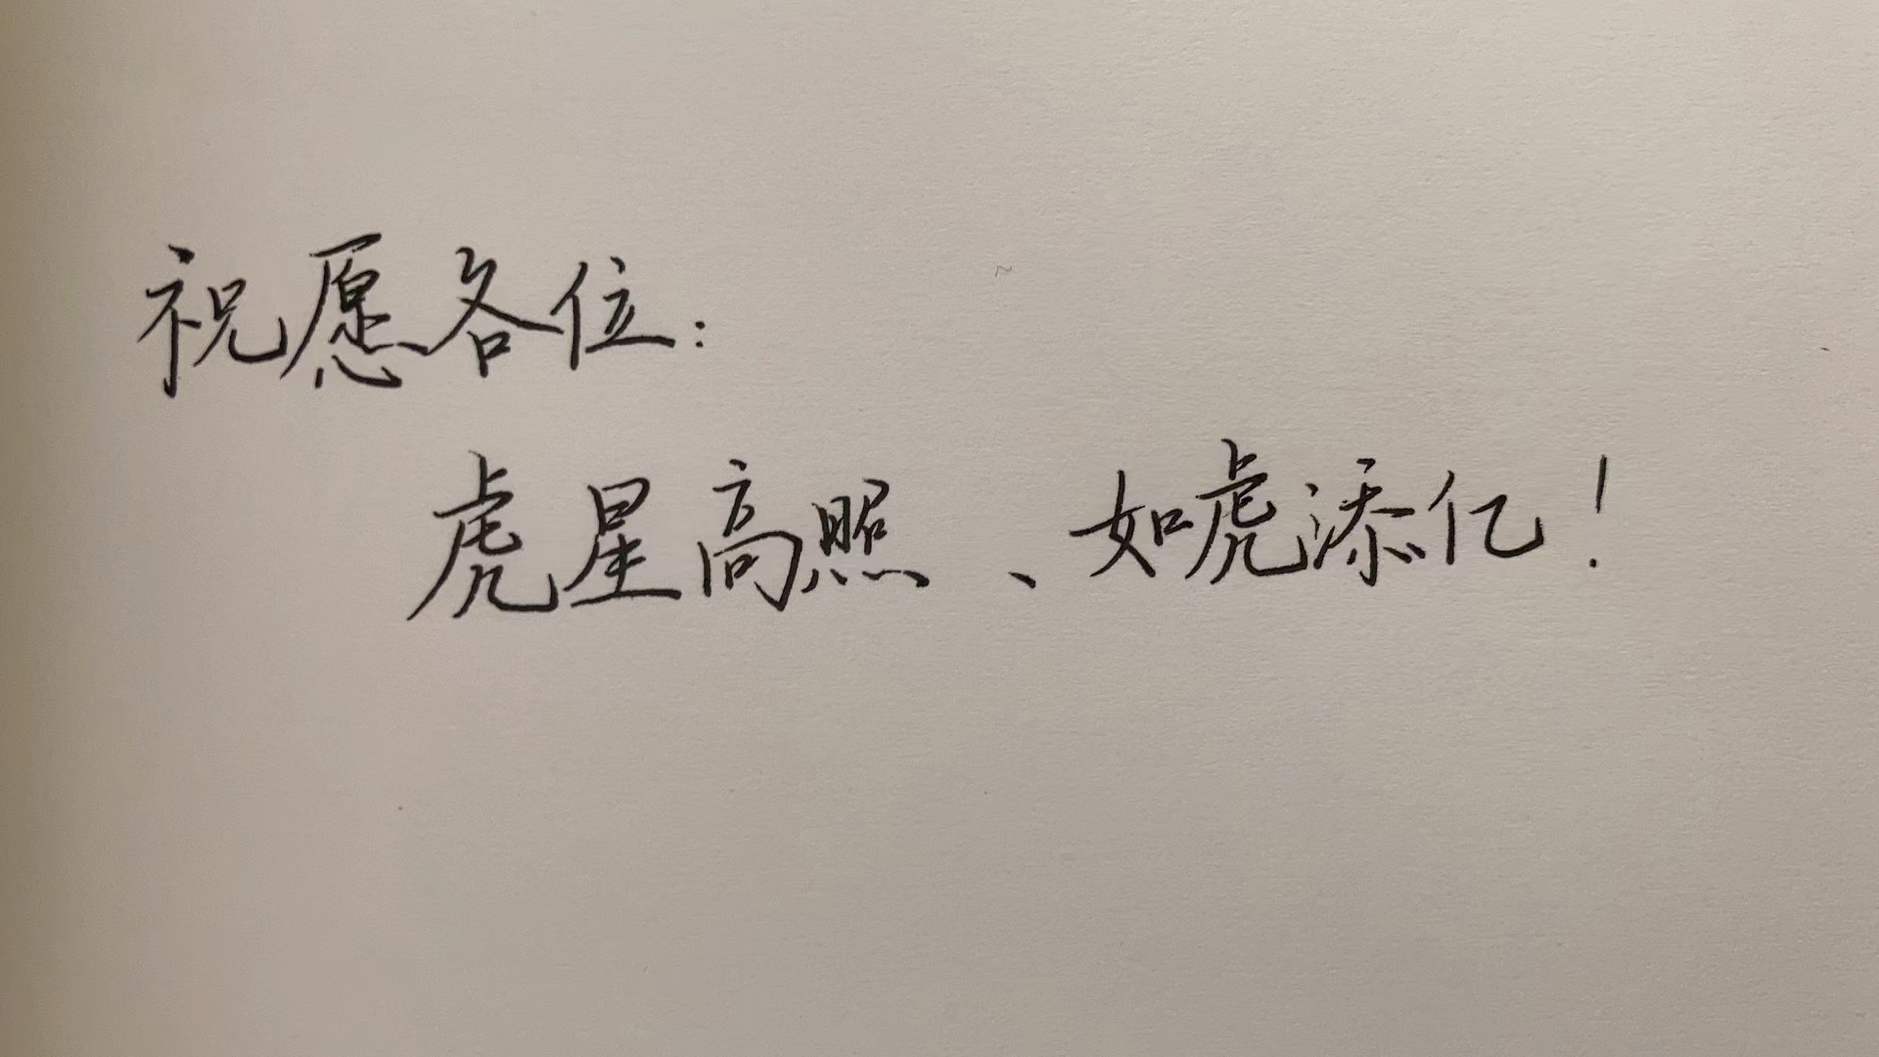 祝愿各位：
虎星高照、如虎添亿！